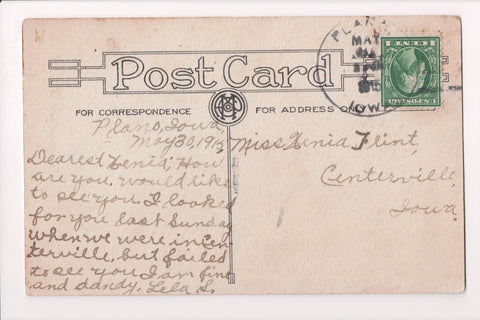 PLANO
MAY
IOWA
Post Card
FOR CORRESPONDENCE
FOR ADDRESS ONLY
Plano, Iowa,
May 30, 1915
Dearest Zenia; How
are you. would like
to see you I looked
for you last Sunday
when we were in Cen-
terville, but failed
to see you I am fine
and dandy. Lela S.
Miss Zenia Flint,
Centerville,
Iowa.